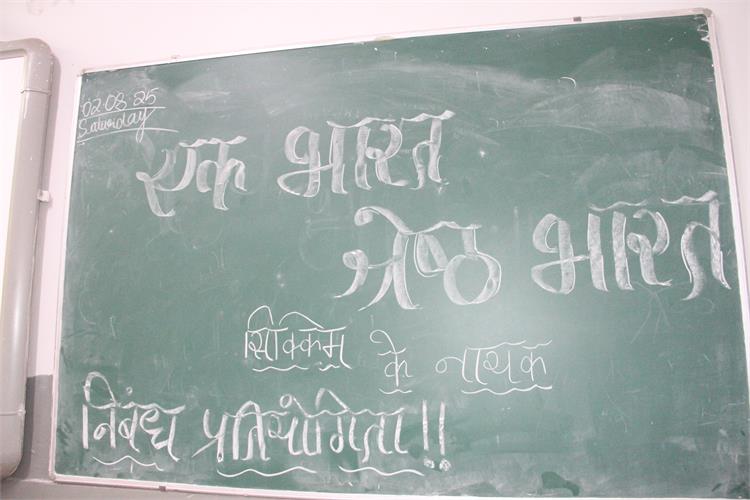 02.08.25
Saturday
एक भारत
श्रेष्ठ भारत
सिक्किम के नायक
निबंध प्रतियोगिता!!